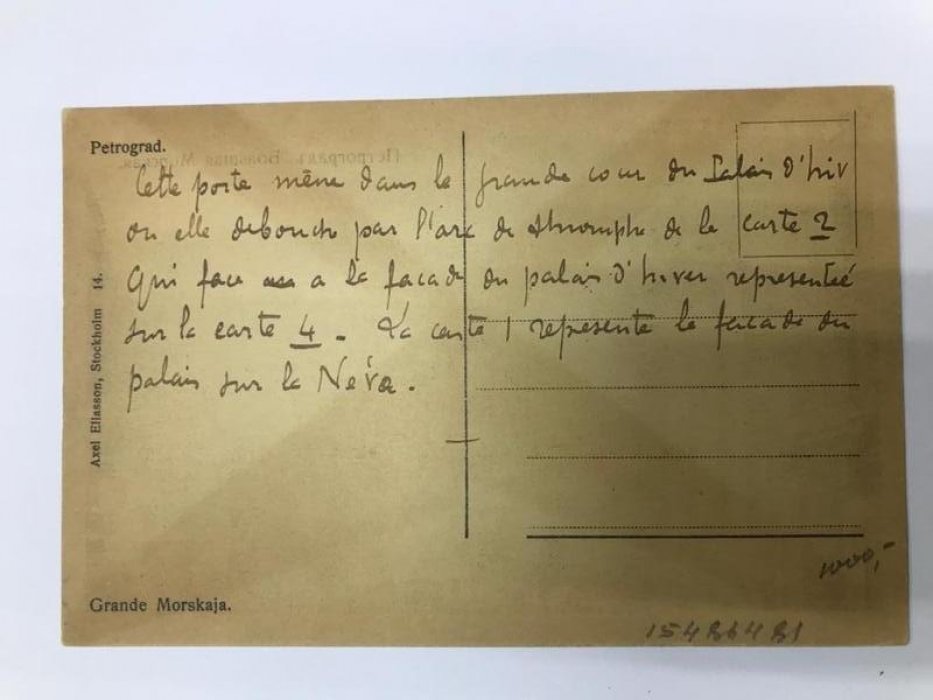 Petrograd.
Cette porte mène dans la grande cour du Palais d'hiv
ou elle debouche par l'arc de triomphe de la carte 2
qui face a la facade du palais d'hiver representeé
sur la carte 4. La carte 1 represente la facade du
palais sur la Néva.
Axel Eliasson, Stockholm 14.
Grande Morskaja.
1000,-